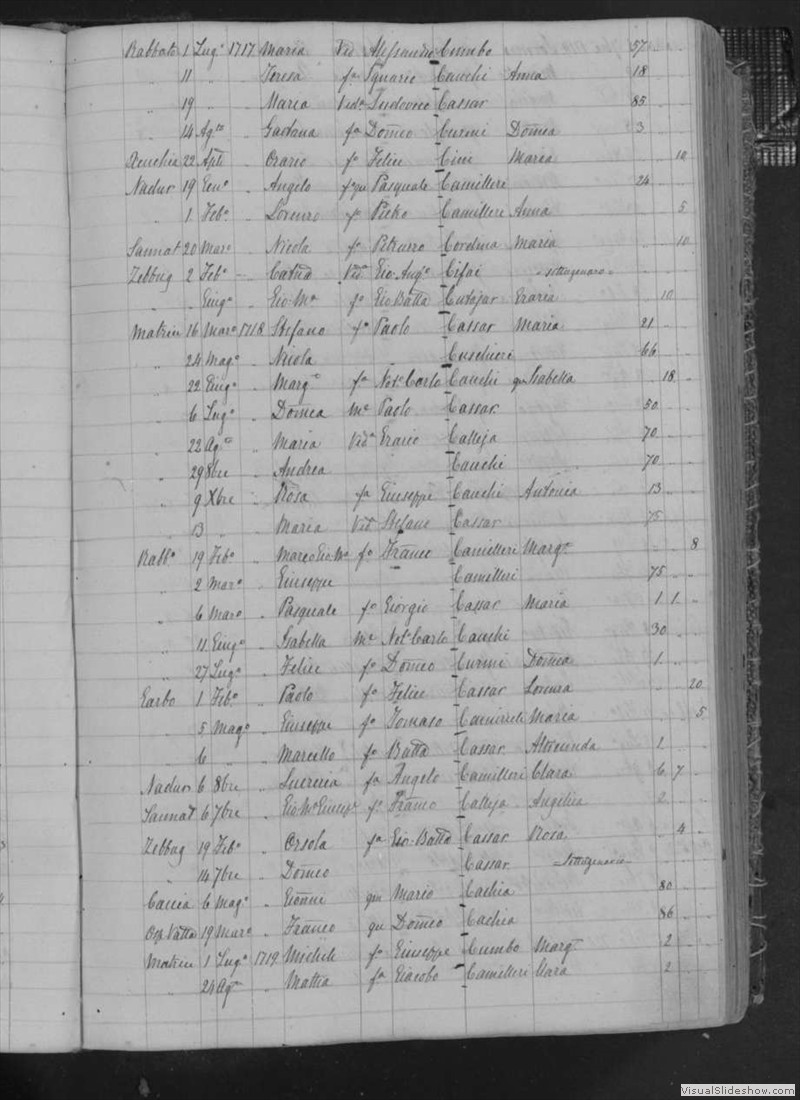 Rabbato 1 Lug.o 1717 Maria Vid Alessandro Cumbo 57
11 " Teresa fa Ignazio Cauchi Anna 18
" 19 " Maria Vida Ludovico Cassar 85
" 14 Ag.to " Gaetana fa Domco Curmi Domca 3
Xeuchia 22 Aple " Orazio fo Felice Cini Maria 10
Nadur 19 Geno " Angelo fo qu Pasquale Camilleri 24
" 1 Febo " Lorenzo fo Pietro Camilleri Anna 5
Sannat 20 Marzo " Nicola fo Petruzzo Cordina Maria 10
Zebbug 2 Febo " Catna Vida Gio Ango Cifai = settagenaro =
" " Giugo " Gio Ma fo Gio Batta Cutajar Grazia 10
Matrice 16 Marzo 1718 Stefano fo Paolo Cassar Maria 21
" 24 Mago " Nicola Cuschieri 66
" 22 Giugo " Marga fa Noto Carlo Cauchi qu Isabella 18
" 6 Lugo " Domca Me Paolo Cassar 50
" 22 Ag.to " Maria Vida Grazio Calleja 70
" 29 8bre " Andrea Cauchi 70
" 9 Xbre " Rosa fa Giuseppe Cauchi Antonia 13
" 13 " Maria Vid Stefano Cassar 75
Rabbo 19 Febo " Marco Gio Ma fo Franco Camilleri Marga 8
2 Marzo " Giuseppe Camilleri 75
" 6 Marzo " Pasquale fo Giorgio Cassar Maria 1 1
" 11 Giugo " Isabella Me Noto Carlo Cauchi 30
" 27 Lugo " Felice fo Domco Curmi Domca 1
Garbo 1 Febo " Paolo fo Felice Cassar 20
5 Mago " Giuseppe fo Tomaso Camilleri Maria 5
6 " Marcello fo Batta Cassar 1
Nadur 6 8bre " Lucrezia fa Angelo Camilleri Clara 6 7
Sannat 6 7bre " Gio Ma Giuspe fo Franco Calleja Angelica 2
Zebbug 19 Febo " Orsola fa Gio Batta Cassar Rosa 4
" 14 7bre " Domco Cassar = settagenario =
Caccia 6 Mago " Gionni qu Mario Cachia 80
19 Marzo " Franco qu Domco Cachia 86
Matrice 1 Lugo 1719 Michele fo Giuseppe Cumbo Marga 2
" 24 Ag.to " Mattia fa Giacobo Camilleri Clara 2
VisualSlideshow.com